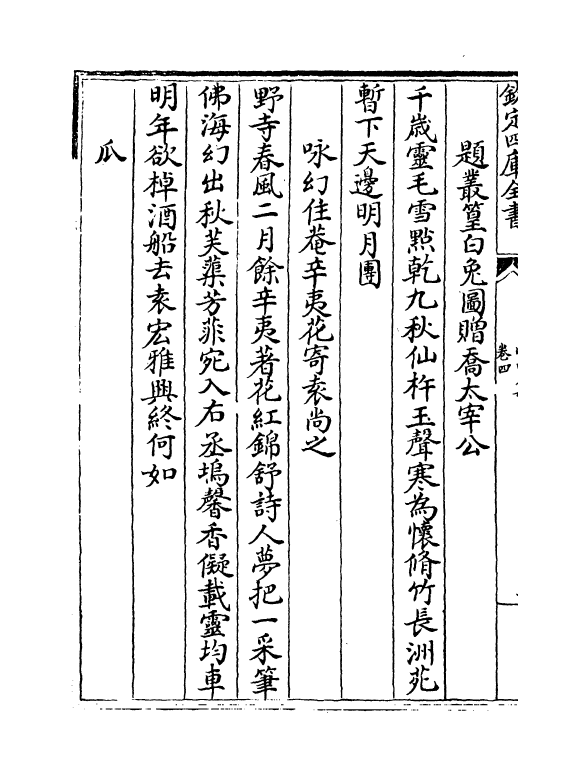 欽定四庫全書
卷四
題叢篁白兔圖贈喬太宰公
千歲靈毛雪點乾九秋仙杵玉聲寒為懷脩竹長洲苑
暫下天邊明月團
咏幻住菴辛夷花寄袁尚之
野寺春風二月餘辛夷著花紅錦舒詩人夢把一采筆
佛海幻出秋芙蕖芳菲宛入右丞塢馨香儗載靈均車
明年欲棹酒船去袁宏雅興終何如
瓜